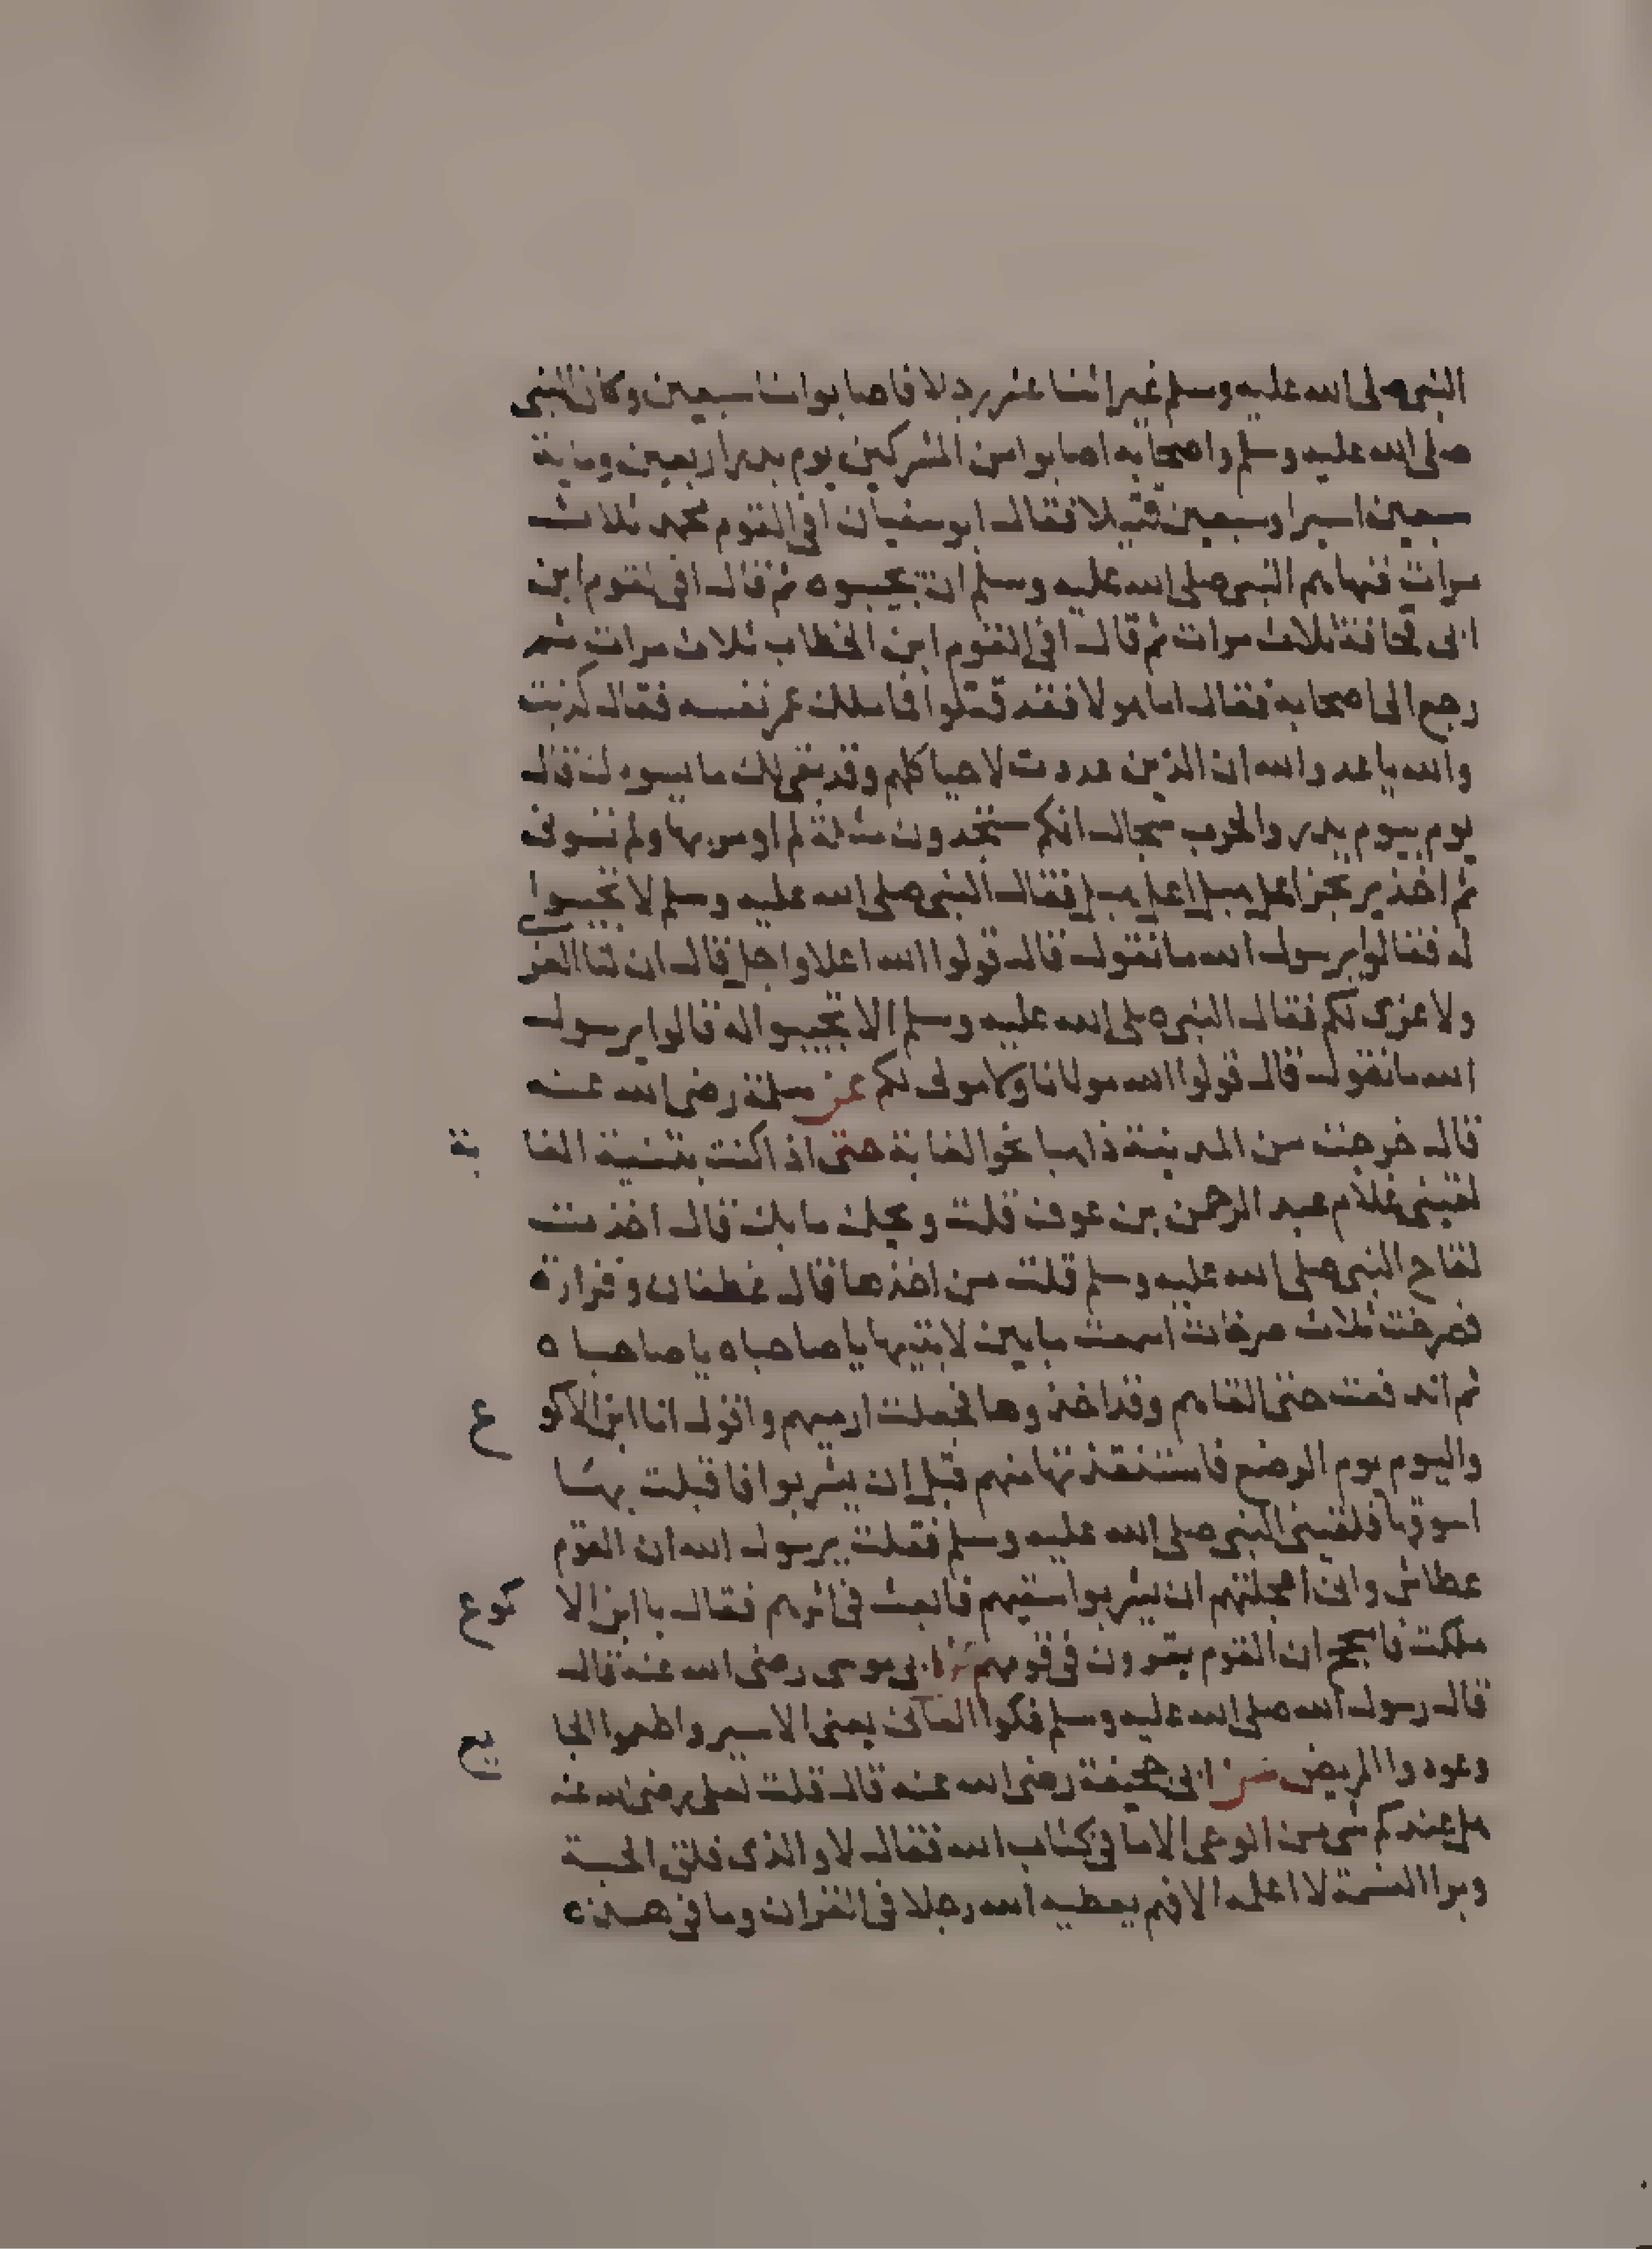 النبي صلى الله عليه وسلم غير اثنا عشر رجلا فاصابوا منا سبعين وكان النبي
صلى الله عليه وسلم واصحابه اصابوا من المشركين يوم بدر اربعين ومية
سبعين اسيرا وسبعين قتيلا فقال ابو سفيان افي القوم محمد ثلاث
مرات فنهاهم النبي صلى الله عليه وسلم ان يجيبوه ثم قال افي القوم ابن
ابي قحافة ثلاث مرات ثم قال افي القوم ابن الخطاب ثلاث مرات ثم
رجع الى اصحابه فقال اما هولا فقد قتلوا فما ملك عمر نفسه فقال كذبت
والله يا عدو الله ان الذين عددت لاحيا كلهم وقد بقي لك ما يسوك قال
يوم بيوم بدر والحرب سجال انكم ستجدون مثلة لم اومر بها ولم تسوني
ثم اخذ يرتجز اعل هبل اعل هبل فقال النبي صلى الله عليه وسلم لا تجيبوا
له فقالوا يرسول الله ما نقول قال قولوا الله اعلا واجل قال ان لنا العزى
ولا عزى لكم فقال النبي صلى الله عليه وسلم الا تجيبوا له قالوا يرسول
الله ما نقول قال قولوا الله مولانا ولا مولى لكم عن سلمة رضي الله عنه
قال خرجت من المدينة ذاهبا نحو الغابة حتى اذا كنت بثنية الغا
بة
لقيني غلام عبد الرحمن بن عوف قلت ويحك ما بك قال اخذت
لقاح النبي صلى الله عليه وسلم قلت من اخذها قال غطفان وفزارة
فصرخت ثلاث صرخات اسمعت ما بين لابتيها يا صاحباه يا صاحباه
ثم اندفعت حتى القاهم وقد اخذوها فجعلت ارميهم واقول انا ابن الاكو
ع
واليوم يوم الرضع فاستنقذتها منهم قبل ان يشربوا فاقبلت بها
اسوقها فلقيني النبي صلى الله عليه وسلم فقلت يرسول الله ان القوم
عطاش واني اعجلتهم ان يشربوا سقيهم فابعث في اثرهم فقال يا ابن الا
كوع
ملكت فاسجح ان القوم يقرون في قومهم عن ابي موسى رضي الله عنه قال
قال رسول الله صلى الله عليه وسلم فكوا العاني يعني الاسير واطعموا الجا
يع
وعودوا المريض عن ابي جحيفة رضي الله عنه قال قلت لعلي رضي الله عنه
هل عندكم شي من الوحي الا ما في كتاب الله فقال لا والذي فلق الحبة
وبرا النسمة لا اعلمه الا فهم يعطيه الله رجلا في القران وما في هذه